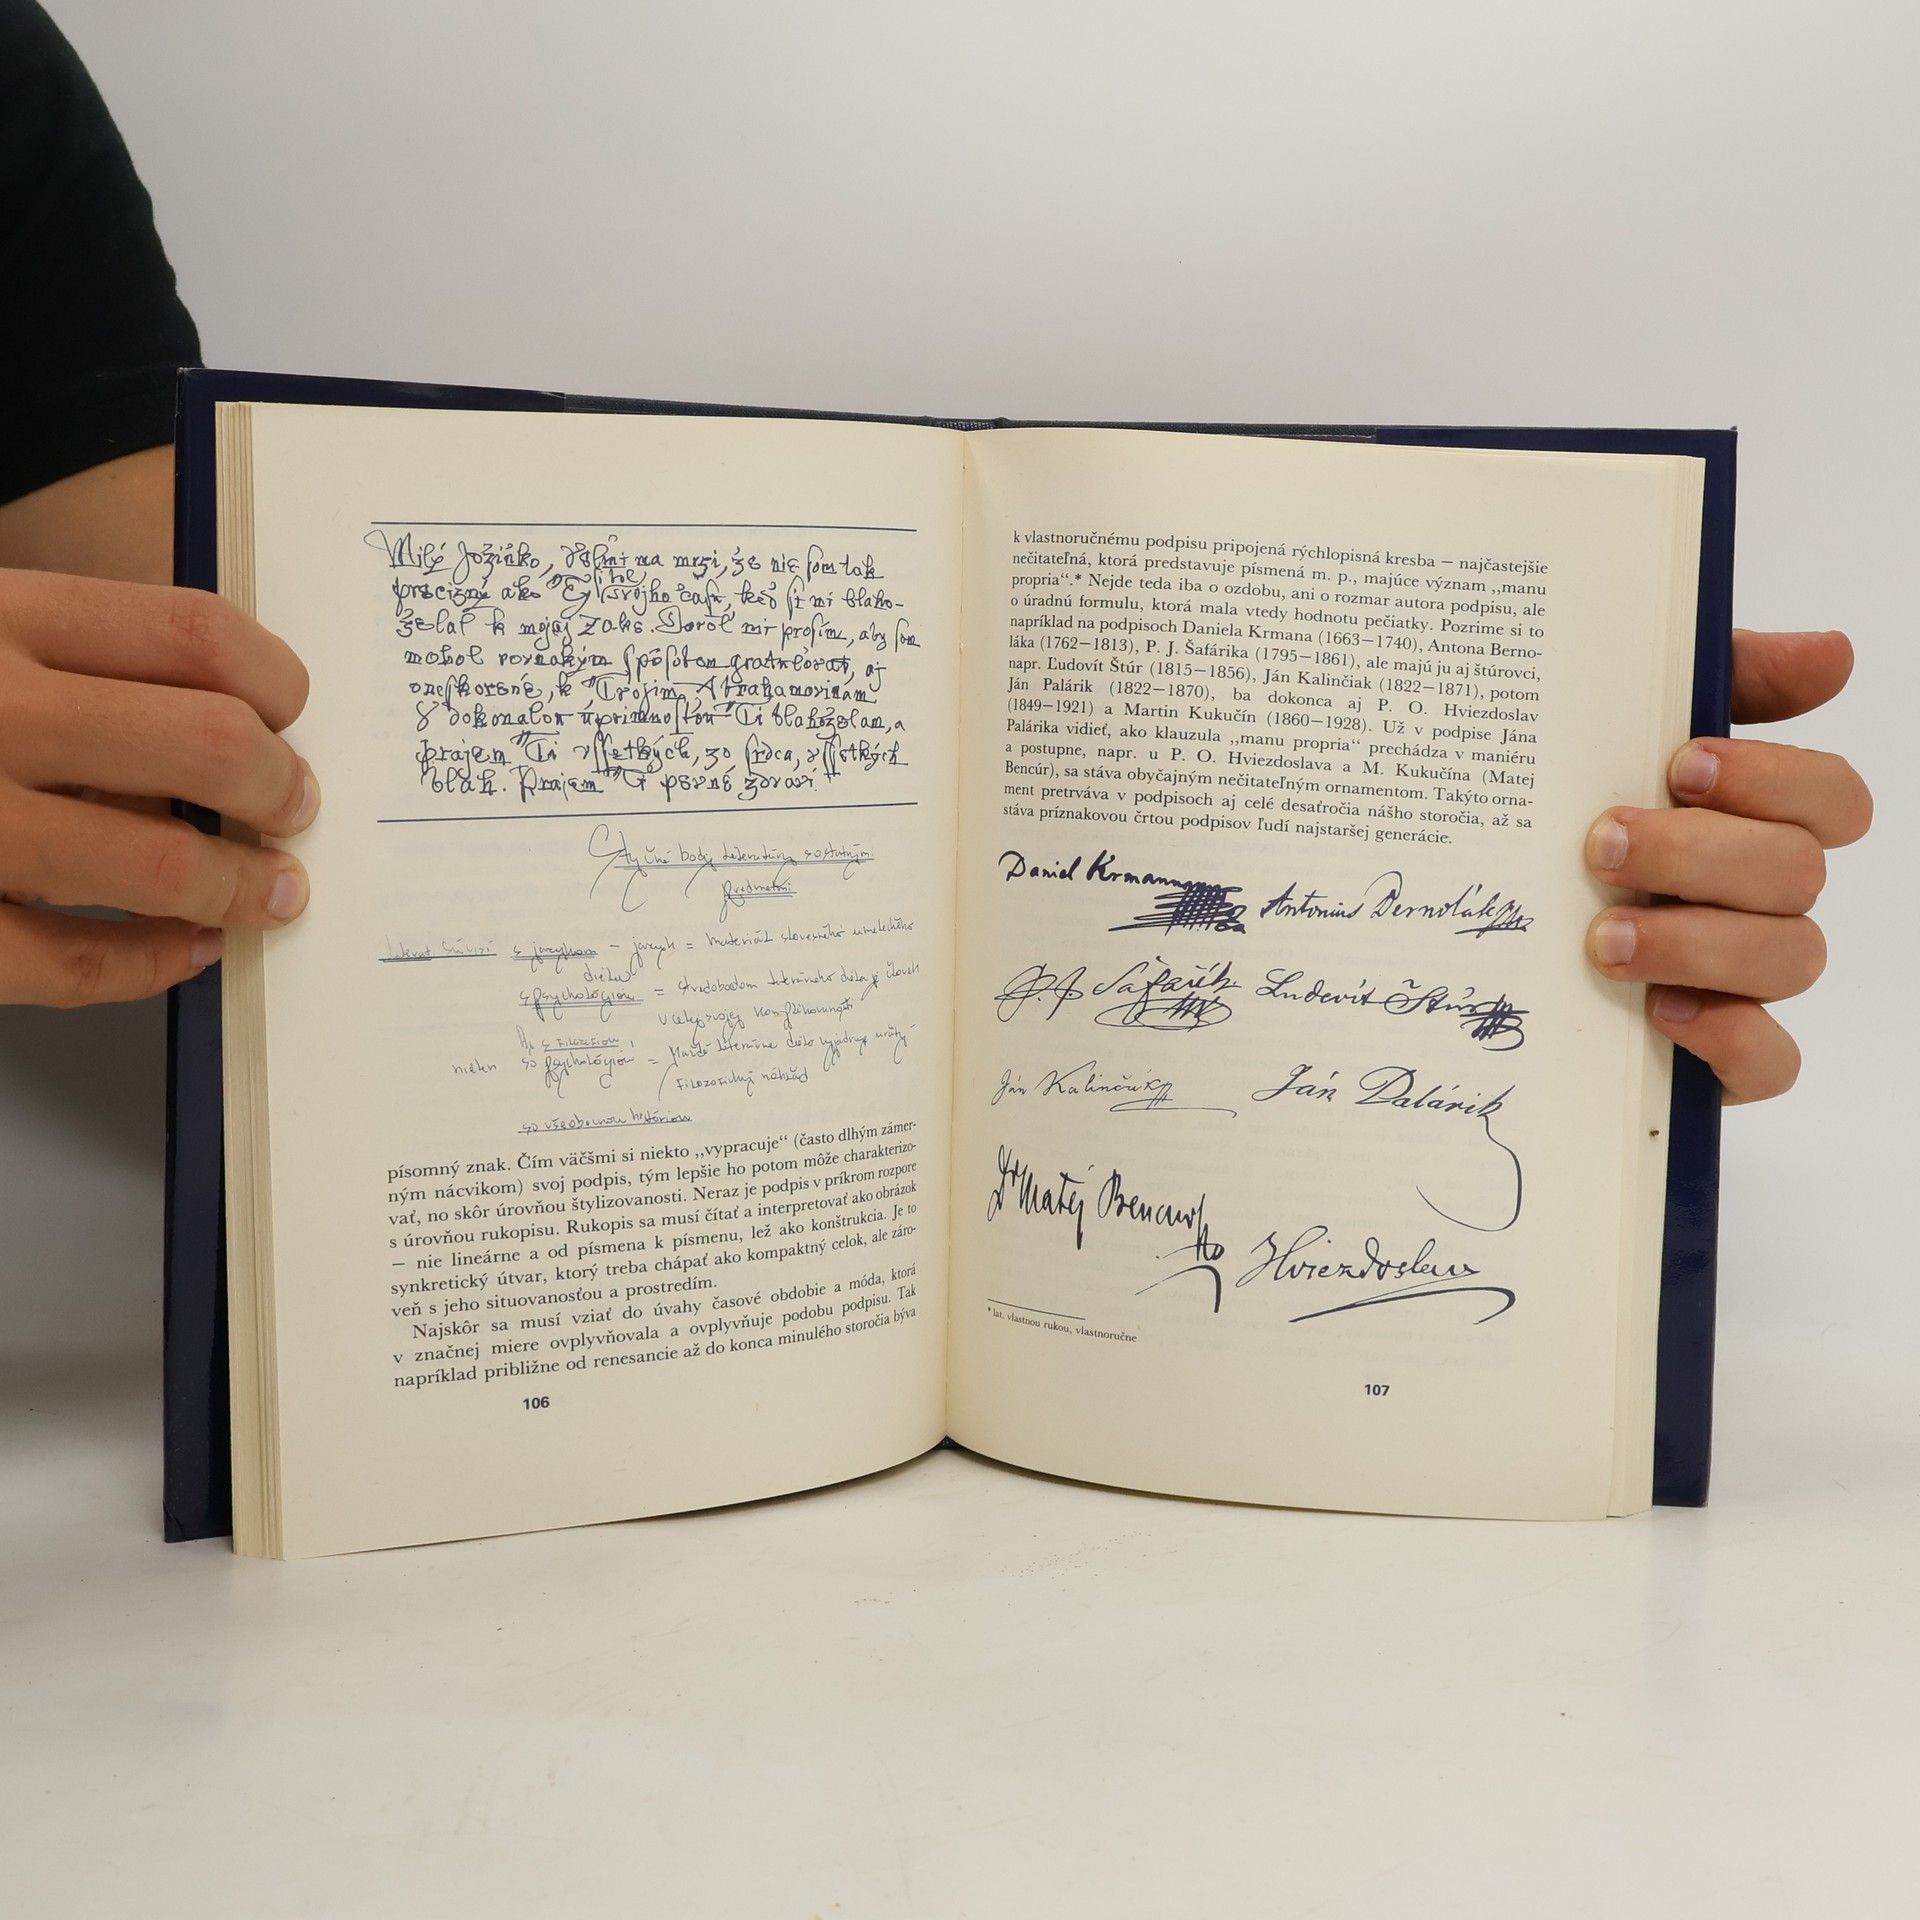 Milý Jožinko, veľmi ma mrzí, že nie som tak
precízny ako Ty bol svojho času, keď si mi blaho-
želal k mojej 70-ke. Dovoľ mi prosím, aby som
mohol rovnakým spôsobom gratulovať, aj
oneskorene, k Tvojim Abrahamovinám
S dokonalou úprimnosťou Ti blahoželám, a
prajem Ti všetkých, zo srdca, všetkých
bláh. Prajem Ti pevné zdravi!
Styčné body literatúry s ostatnými
predmetmi
súvisí s jazykom – jazyk = materiál slovesného umeleckého
diela
s psychológiou = stredobodom literárneho diela je človek
v celej svojej komplikovanosti
s filozofiou
nielen so psychológiou = Každé literárne dielo vyjadruje určitý
filozofický náhľad
so všeobecnou históriou
písomný znak. Čím väčšmi si niekto ,,vypracuje“ (často dlhým zámer-
ným nácvikom) svoj podpis, tým lepšie ho potom môže charakterizo-
vať, no skôr úrovňou štylizovanosti. Neraz je podpis v príkrom rozpore
s úrovňou rukopisu. Rukopis sa musí čítať a interpretovať ako obrázok
— nie lineárne a od písmena k písmenu, lež ako konštrukcia. Je to
synkretický útvar, ktorý treba chápať ako kompaktný celok, ale záro-
veň s jeho situovanosťou a prostredím.
Najskôr sa musí vziať do úvahy časové obdobie a móda, ktorá
v značnej miere ovplyvňovala a ovplyvňuje podobu podpisu. Tak
napríklad približne od renesancie až do konca minulého storočia býva
106
k vlastnoručnému podpisu pripojená rýchlopisná kresba — najčastejšie
nečitateľná, ktorá predstavuje písmená m. p., majúce význam ,,manu
propria“.* Nejde teda iba o ozdobu, ani o rozmar autora podpisu, ale
o úradnú formulu, ktorá mala vtedy hodnotu pečiatky. Pozrime si to
napríklad na podpisoch Daniela Krmana (1663—1740), Antona Berno-
láka (1762—1813), P. J. Šafárika (1795—1861), ale majú ju aj štúrovci,
napr. Ľudovít Štúr (1815—1856), Ján Kalinčiak (1822—1871), potom
Ján Palárik (1822—1870), ba dokonca aj P. O. Hviezdoslav
(1849—1921) a Martin Kukučín (1860—1928). Už v podpise Jána
Palárika vidieť, ako klauzula ,,manu propria“ prechádza v maniéru
a postupne, napr. u P. O. Hviezdoslava a M. Kukučína (Matej
Bencúr), sa stáva obyčajným nečitateľným ornamentom. Takýto orna-
ment pretrváva v podpisoch aj celé desaťročia nášho storočia, až sa
stáva príznakovou črtou podpisov ľudí najstaršej generácie.
Daniel Krmann
Antonius Bernolák
P. J. Šafařík
Ludevít Štúr
Ján Kalinčák
Ján Palárik
Dr Matěj Bencur
Hviezdoslav
* lat. vlastnou rukou, vlastnoručne
107